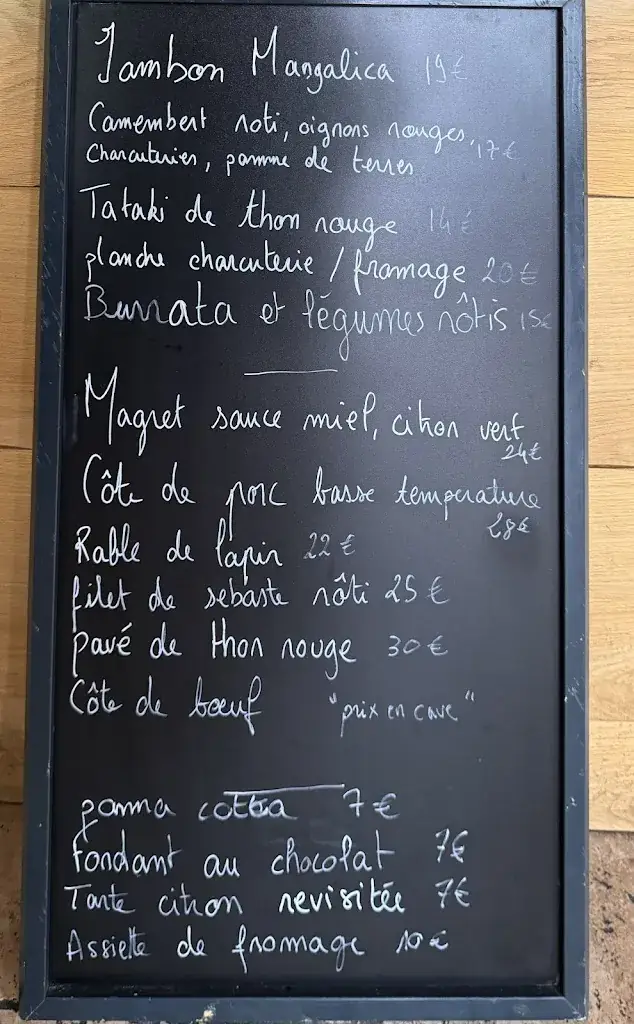 Jambon Mangalica 19€
Camembert roti, oignons rouges,
Charcuteries, pomme de terres 17€
Tataki de thon rouge 14€
planche charcuterie / fromage 20€
Burrata et légumes rôtis 15€
Magret sauce miel, citron vert
24€
Côte de porc basse temperature
28€
Rable de lapin 22€
filet de sebaste rôti 25€
pavé de thon rouge 30€
Côte de bœuf "prix en cave"
panna cotta 7€
fondant au chocolat 7€
Tarte citron revisitée 7€
Assiette de fromage 10€